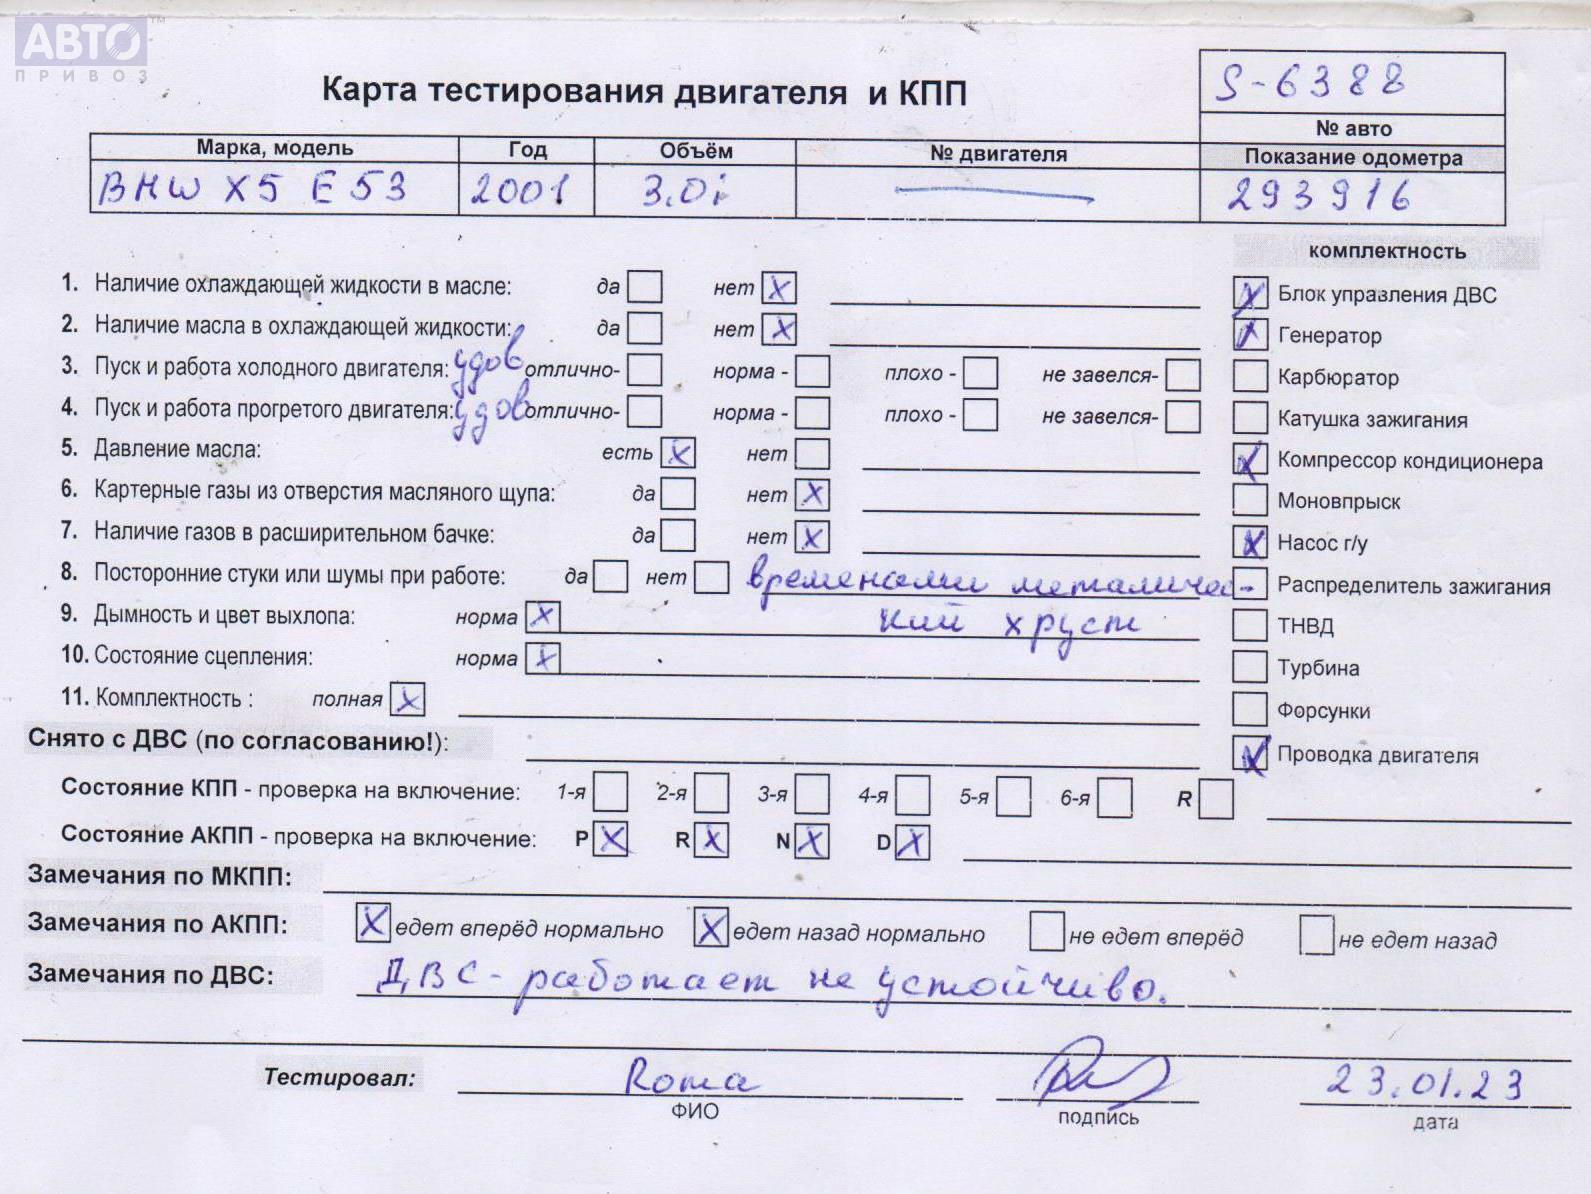 АВТО
ПРИВОЗ
Карта тестирования двигателя и КПП
S-6388
№ авто
Марка, модель Год Объём № двигателя Показание одометра
BMW X5 E53 2001 3.0i — 293916
комплектность
1. Наличие охлаждающей жидкости в масле: да нет X
Блок управления ДВС
2. Наличие масла в охлаждающей жидкости: да нет X
Генератор
3. Пуск и работа холодного двигателя: удов отлично- норма - плохо - не завелся-
Карбюратор
4. Пуск и работа прогретого двигателя: удов отлично- норма - плохо - не завелся-
Катушка зажигания
5. Давление масла: есть X нет
Компрессор кондиционера
6. Картерные газы из отверстия масляного щупа: да нет X
Моновпрыск
7. Наличие газов в расширительном бачке: да нет X
Насос г/у
8. Посторонние стуки или шумы при работе: да нет временами металичес-
Распределитель зажигания
9. Дымность и цвет выхлопа: норма X кий хруст
ТНВД
10. Состояние сцепления: норма X
Турбина
11. Комплектность : полная X
Форсунки
Снято с ДВС (по согласованию!):
Проводка двигателя
Состояние КПП - проверка на включение: 1-я 2-я 3-я 4-я 5-я 6-я R
Состояние АКПП - проверка на включение: P X R X N X D X
Замечания по МКПП:
Замечания по АКПП: X едет вперёд нормально X едет назад нормально не едет вперёд не едет назад
Замечания по ДВС: ДВС - работает не устойчиво.
Тестировал: Roma 23.01.23
ФИО подпись дата